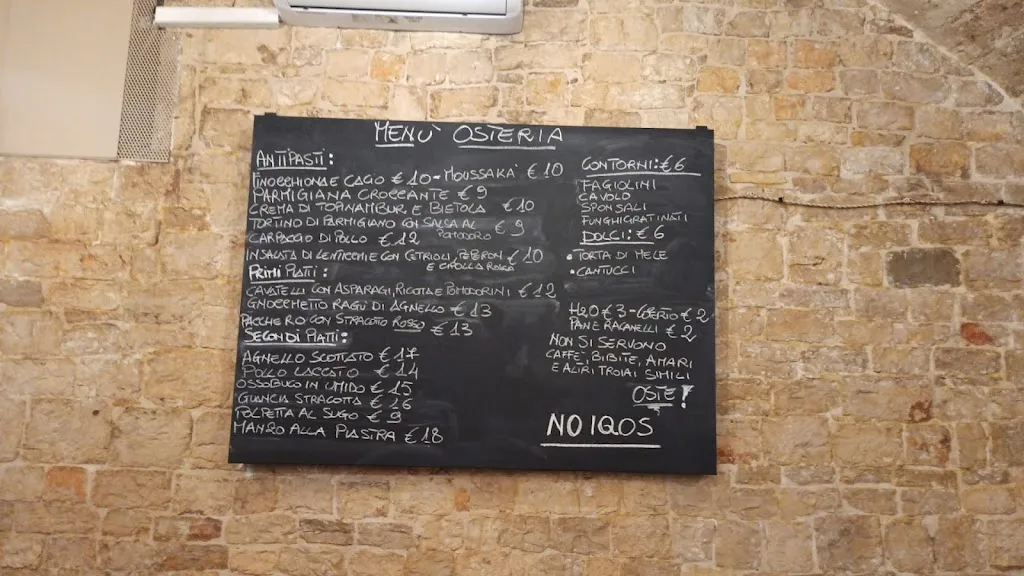 MENÙ OSTERIA
ANTIPASTI:
FINOCCHIONA E CACIO € 10 - MOUSSAKA' € 10
PARMIGIANA CROCCANTE € 9
CREMA DI TOPINAMBUR E BIETOLA € 10
TORTINO DI PARMIGIANO CON SALSA AL POMODORO € 9
CARPACCIO DI POLLO € 12
INSALATA DI LENTICCHIE CON CETRIOLI, PEPERONI € 10
E CIPOLLA ROSSA
PRIMI PIATTI:
CAVATELLI CON ASPARAGI, RICOTA E POMODORINI € 12
GNOCCHETTO RAGÙ DI AGNELLO € 13
PACCHERO CON STRACOTTO ROSSO € 13
SECONDI PIATTI:
AGNELLO SCOTTATO € 17
POLLO LACCATO € 14
OSSOBUCO IN UMIDO € 15
GUANCIA STRACOTTA € 16
POLPETTA AL SUGO € 9
MANZO ALLA PIASTRA € 18
CONTORNI: € 6
FAGIOLINI
CAVOLO
SPONSALI
FUNGHI GRATINATI
DOLCI: € 6
• TORTA DI MELE
• CANTUCCI
H2O € 3 - COPERTO € 2
PANE RAGANELLI € 2
NON SI SERVONO
CAFFE', BIBITE, AMARI
E ALTRI TROIAI SIMILI
OSTE!
NO IQOS